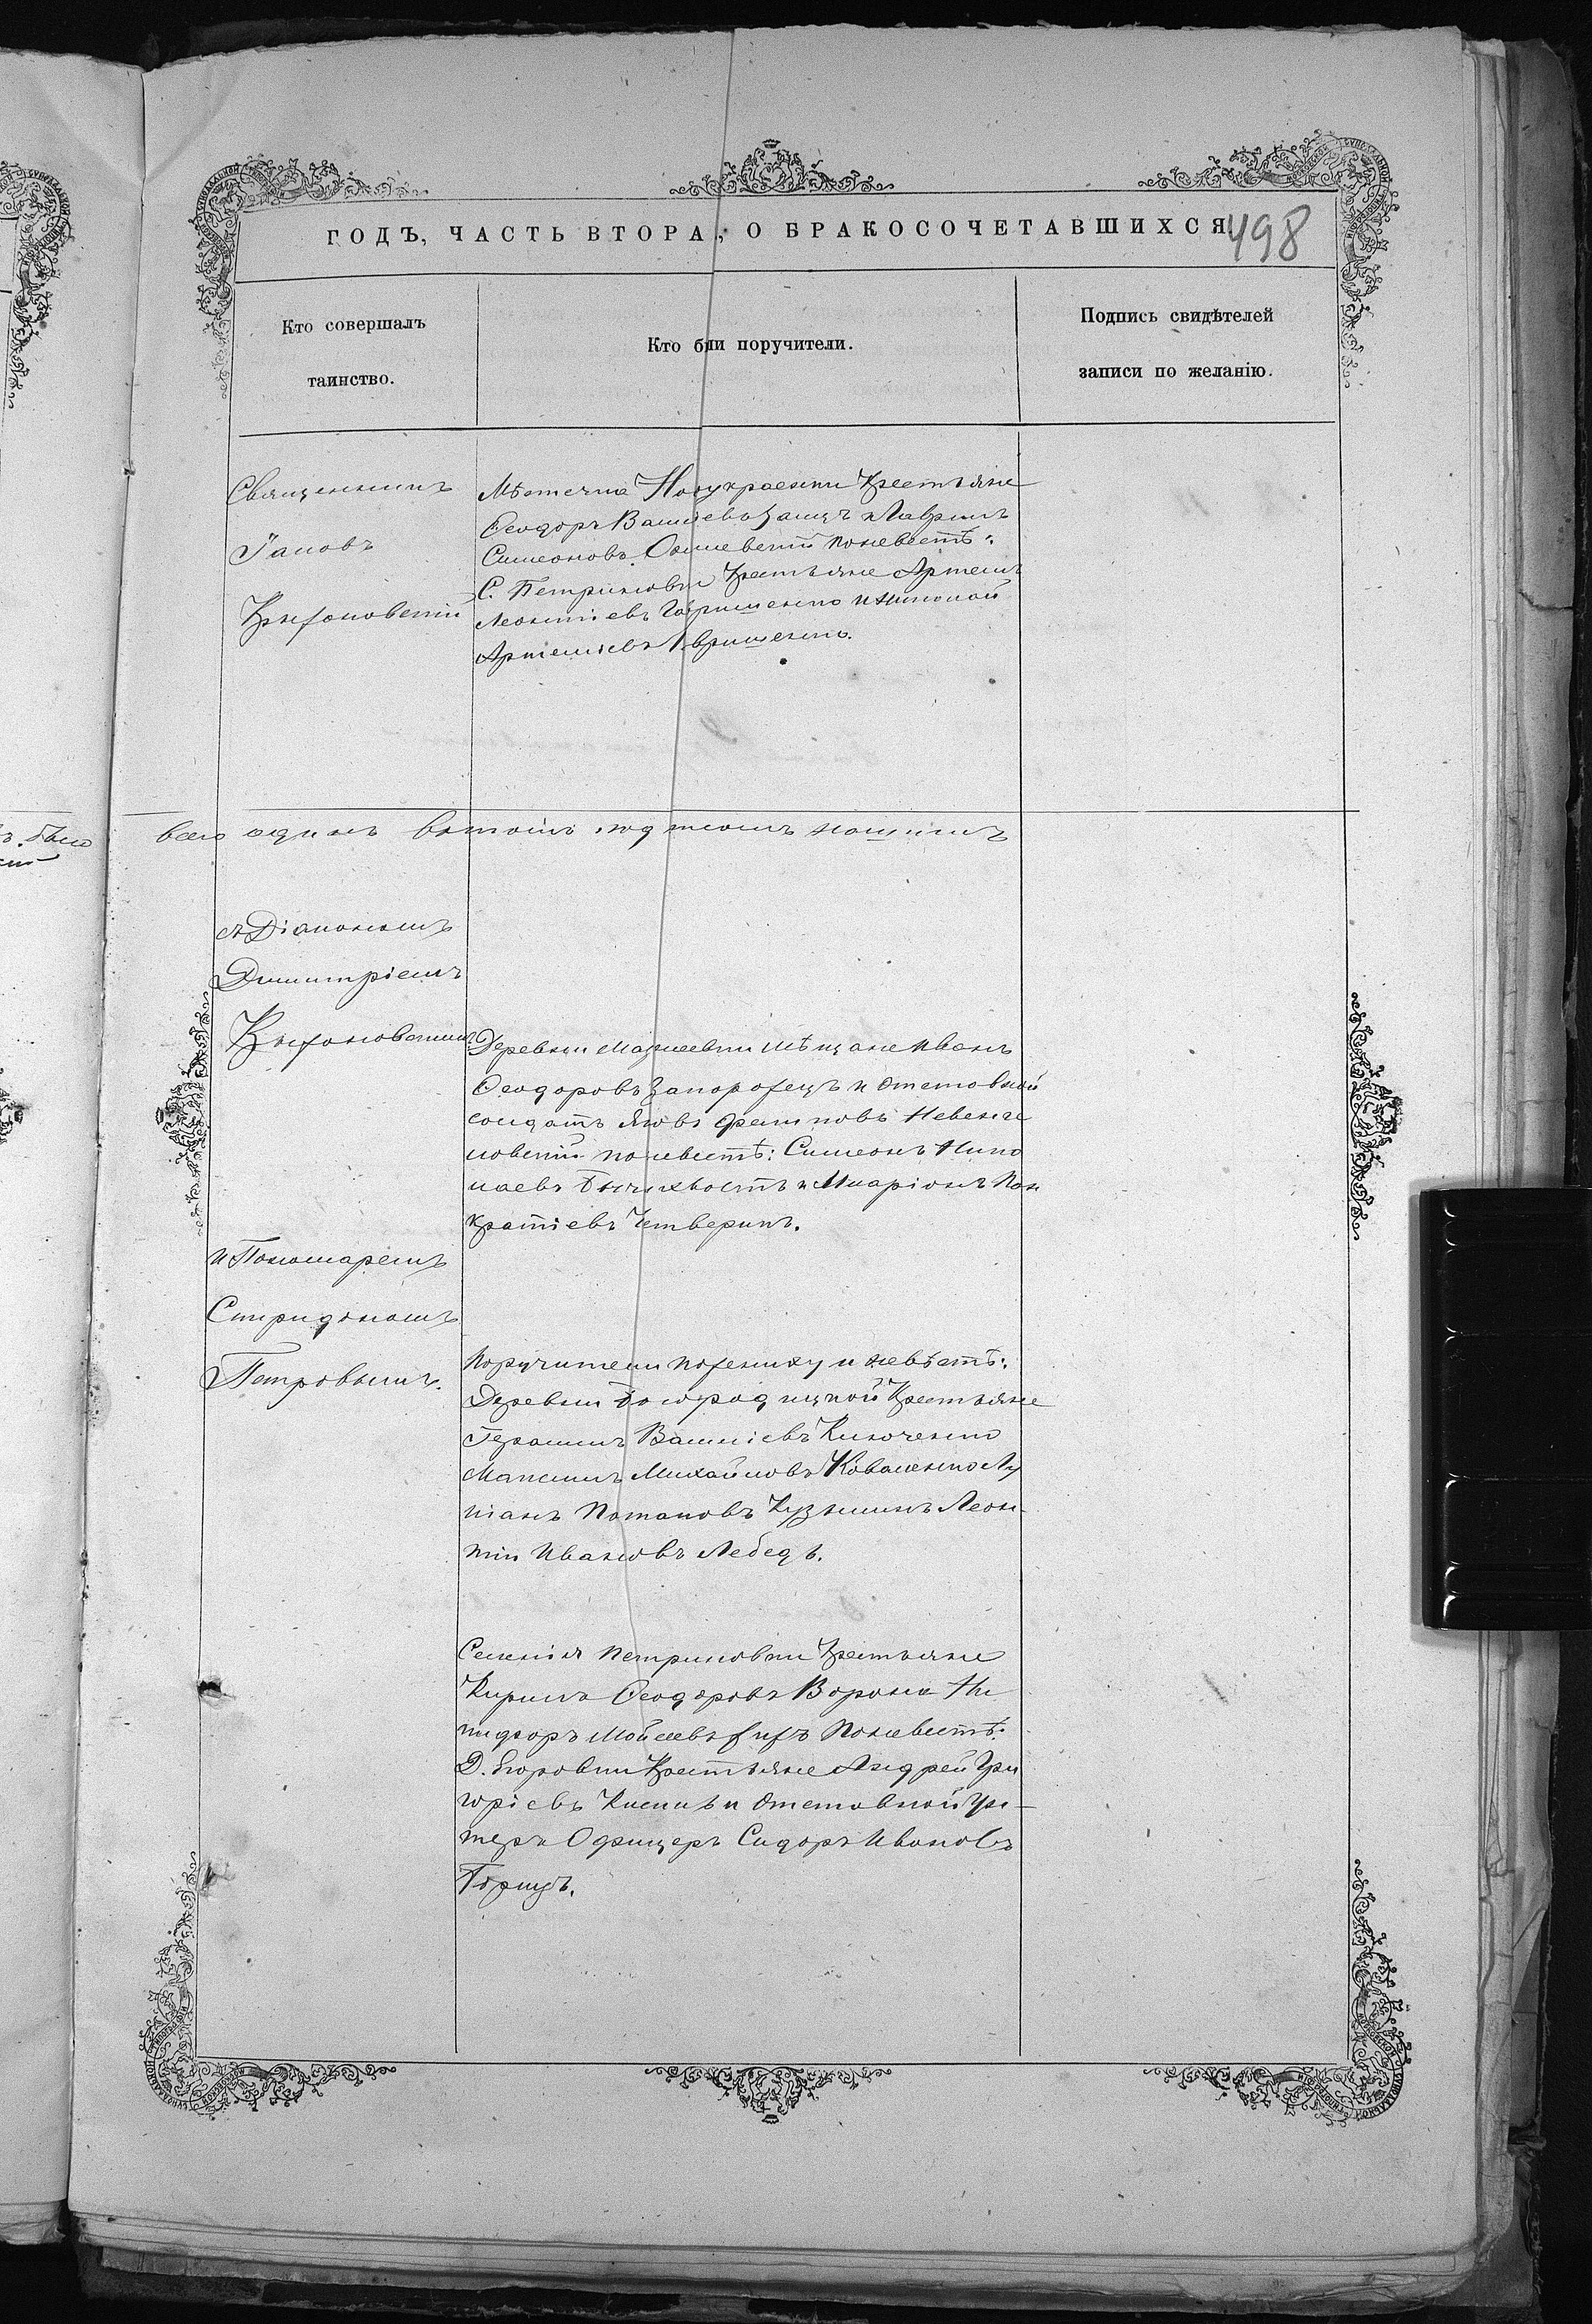 498
ГОДЪ, ЧАСТЬ ВТОРА, О БРАКОСОЧЕТАВШИХСЯ
Кто совершалъ
таинство.
Кто бли поручители.
Подпись свидѣтелей
записи по желанію.
Священникъ
Іаковъ
Крыжановскій
Мѣстечка Новоукраинки Крестьяне
Ѳеодоръ Василіевъ Заяцъ и Лаврин
Симеоновъ поневестѣ:
С. Петриковки Крестьяне Артемій
Леонтіевъ Гавришенко и Николай
Артеміевъ Гавришенко.
всего одинъ
съ Діакономъ
Димитріемъ
Крыжановскимъ
Деревни мѣщане Иванъ
Ѳеодоровъ Запорожецъ и Отставной
солдатъ Яковъ
поневестѣ: Симеонъ Нико
лаевъ и Иларіонъ Пан
кратіевъ Четверикъ.
и Пономаремъ
Спиридономъ
Петровымъ.
Поручители по жениху и невѣстѣ:
Деревни Богородицкой Крестьяне
Герасимъ Василіевъ Ключенко
Максимъ Михайловъ Коваленко Лу
кіанъ Потаповъ Кузьминъ Леон-
тій Ивановъ Лебедь.
Селенія Петриковки Крестьяне
Кирилъ Ѳеодоровъ Ворона Ни
кифоръ Мойсеевъ Поневестѣ:
Д. Егоровки Крестьяне Андрей Гри
горіевъ и Отставной Ун-
теръ Офицеръ Сидоръ Ивановъ